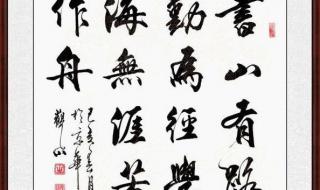 書山有路
勤為徑學
海無涯苦
作舟
己亥春月
於京華